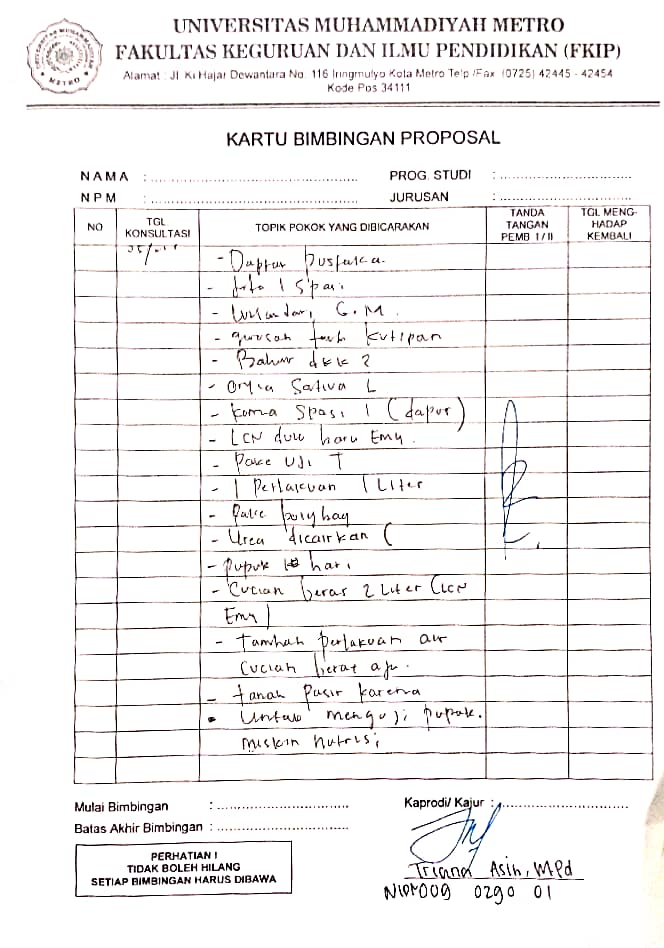 UNIVERSITAS MUHAMMADIYAH METRO
FAKULTAS KEGURUAN DAN ILMU PENDIDIKAN (FKIP)
Alamat : Jl. Ki Hajar Dewantara No. 116 Iringmulyo Kota Metro Telp /Fax (0725) 42445 - 42454
Kode Pos 34111
KARTU BIMBINGAN PROPOSAL
NAMA : PROG. STUDI :
NPM : JURUSAN :
NO TGL KONSULTASI TOPIK POKOK YANG DIBICARAKAN TANDA TANGAN PEMB I/II TGL MENG-HADAP KEMBALI
- Daptar Pustaka.
- 1 Spasi
- G.M.
- kutipan
- dkk ?
- Sativa L
- Koma Spasi 1 (dapus)
- LCN dulu baru Emy.
- Pake Uji T
- 1 Perlakuan 1 Liter
- Pake polybag
- Urea dicairkan (
- Pupuk hari
- Cucian beras 2 Liter (LCN
Emy)
- Tambah perlakuan air
Cucian beras aja.
- tanah pasir karena
• Untuk menguji pupuk.
miskin nutrisi
Mulai Bimbingan : Kaprodi/ Kajur :
Batas Akhir Bimbingan :
PERHATIAN !
TIDAK BOLEH HILANG
SETIAP BIMBINGAN HARUS DIBAWA
Triana Asih, MPd
0290 01